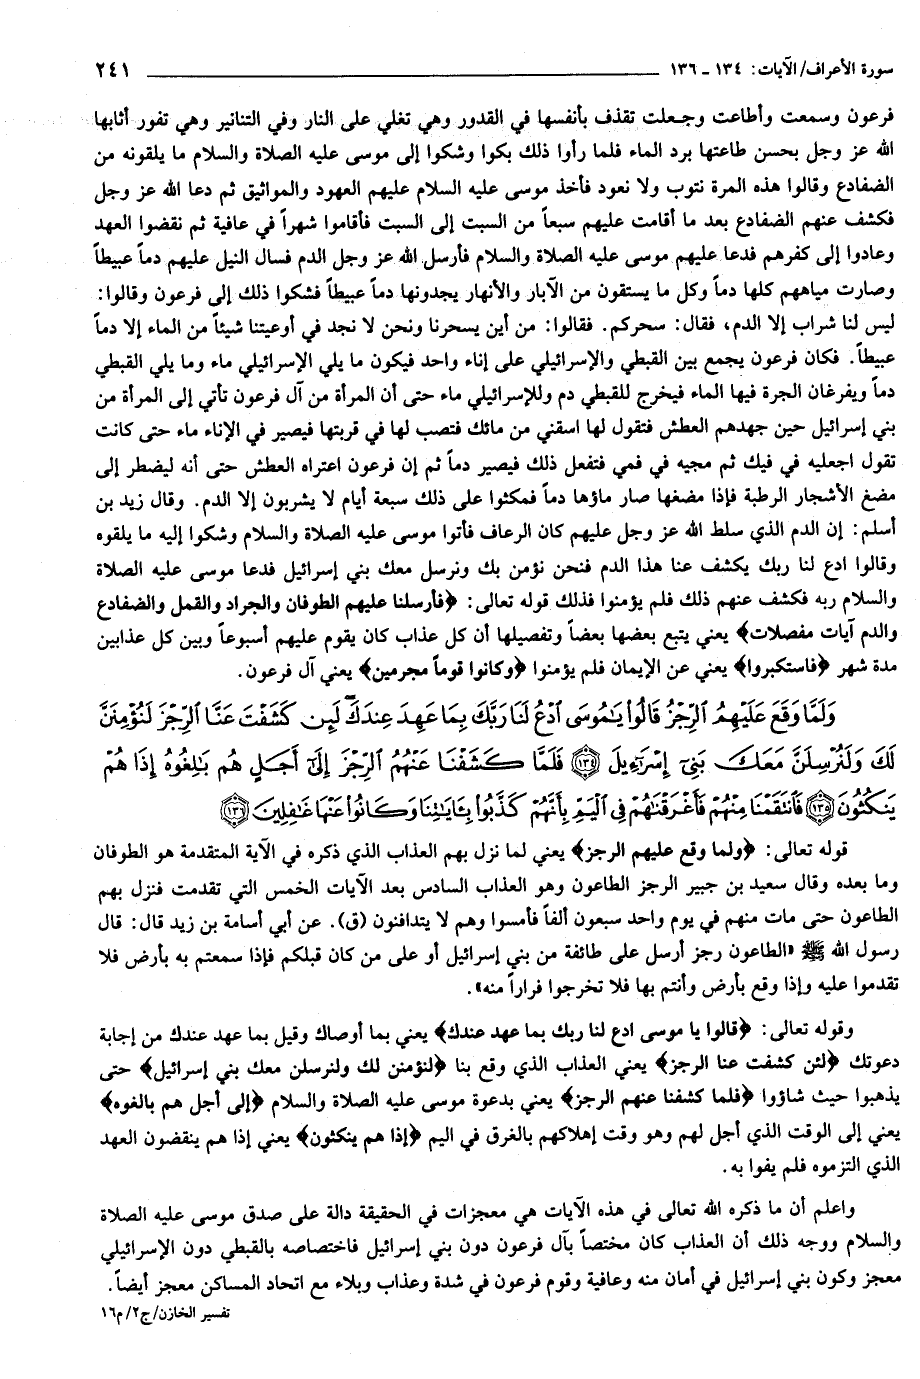 سورة الأعراف/ الآيات: ١٣٤ ـ ١٣٦ ٢٤١
فرعون وسمعت وأطاعت وجعلت تقذف بأنفسها في القدور وهي تغلي على النار وفي التنانير وهي تفور أثابها
الله عز وجل بحسن طاعتها برد الماء فلما رأوا ذلك بكوا وشكوا إلى موسى عليه الصلاة والسلام ما يلقونه من
الضفادع وقالوا هذه المرة نتوب ولا نعود فأخذ موسى عليه السلام عليهم العهود والمواثيق ثم دعا الله عز وجل
فكشف عنهم الضفادع بعد ما أقامت عليهم سبعاً من السبت إلى السبت فأقاموا شهراً في عافية ثم نقضوا العهد
وعادوا إلى كفرهم فدعا عليهم موسى عليه الصلاة والسلام فأرسل الله عز وجل الدم فسال النيل عليهم دماً عبيطاً
وصارت مياههم كلها دماً وكل ما يستقون من الآبار والأنهار يجدونها دماً عبيطاً فشكوا ذلك إلى فرعون وقالوا:
ليس لنا شراب إلا الدم، فقال: سحركم. فقالوا: من أين يسحرنا ونحن لا نجد في أوعيتنا شيئاً من الماء إلا دماً
عبيطاً. فكان فرعون يجمع بين القبطي والإسرائيلي على إناء واحد فيكون ما يلي الإسرائيلي ماء وما يلي القبطي
دماً ويفرغان الجرة فيها الماء فيخرج للقبطي دم وللإسرائيلي ماء حتى أن المرأة من آل فرعون تأتي إلى المرأة من
بني إسرائيل حين جهدهم العطش فتقول لها اسقني من مائك فتصب لها في قربتها فيصير في الإناء ماء حتى كانت
تقول اجعليه في فيك ثم مجيه في فمي فتفعل ذلك فيصير دماً ثم إن فرعون اعتراه العطش حتى أنه ليضطر إلى
مضغ الأشجار الرطبة فإذا مضغها صار ماؤها دماً فمكثوا على ذلك سبعة أيام لا يشربون إلا الدم. وقال زيد بن
أسلم: إن الدم الذي سلط الله عز وجل عليهم كان الرعاف فأتوا موسى عليه الصلاة والسلام وشكوا إليه ما يلقوه
وقالوا ادع لنا ربك يكشف عنا هذا الدم فنحن نؤمن بك ونرسل معك بني إسرائيل فدعا موسى عليه الصلاة
والسلام ربه فكشف عنهم ذلك فلم يؤمنوا فذلك قوله تعالى: ﴿فأرسلنا عليهم الطوفان والجراد والقمل والضفادع
والدم آيات مفصلات﴾ يعني يتبع بعضها بعضاً وتفصيلها أن كل عذاب كان يقوم عليهم أسبوعاً وبين كل عذابين
مدة شهر ﴿فاستكبروا﴾ يعني عن الإيمان فلم يؤمنوا ﴿وكانوا قوماً مجرمين﴾ يعني آل فرعون.
وَلَمَّا وَقَعَ عَلَيْهِمُ ٱلرِّجْزُ قَالُوا۟ يَٰمُوسَى ٱدْعُ لَنَا رَبَّكَ بِمَا عَهِدَ عِندَكَ ۖ لَئِن كَشَفْتَ عَنَّا ٱلرِّجْزَ لَنُؤْمِنَنَّ
لَكَ وَلَنُرْسِلَنَّ مَعَكَ بَنِىٓ إِسْرَٰٓءِيلَ ﴿١٣٤﴾ فَلَمَّا كَشَفْنَا عَنْهُمُ ٱلرِّجْزَ إِلَىٰٓ أَجَلٍ هُم بَٰلِغُوهُ إِذَا هُمْ
يَنكُثُونَ ﴿١٣٥﴾ فَٱنتَقَمْنَا مِنْهُمْ فَأَغْرَقْنَٰهُمْ فِى ٱلْيَمِّ بِأَنَّهُمْ كَذَّبُوا۟ بِـَٔايَٰتِنَا وَكَانُوا۟ عَنْهَا غَٰفِلِينَ ﴿١٣٦﴾
قوله تعالى: ﴿ولما وقع عليهم الرجز﴾ يعني لما نزل بهم العذاب الذي ذكره في الآية المتقدمة هو الطوفان
وما بعده وقال سعيد بن جبير الرجز الطاعون وهو العذاب السادس بعد الآيات الخمس التي تقدمت فنزل بهم
الطاعون حتى مات منهم في يوم واحد سبعون ألفاً فأمسوا وهم لا يتدافنون (ق). عن أبي أسامة بن زيد قال: قال
رسول الله ﷺ «الطاعون رجز أرسل على طائفة من بني إسرائيل أو على من كان قبلكم فإذا سمعتم به بأرض فلا
تقدموا عليه وإذا وقع بأرض وأنتم بها فلا تخرجوا فراراً منه».
وقوله تعالى: ﴿قالوا يا موسى ادع لنا ربك بما عهد عندك﴾ يعني بما أوصاك وقيل بما عهد عندك من إجابة
دعوتك ﴿لئن كشفت عنا الرجز﴾ يعني العذاب الذي وقع بنا ﴿لنؤمنن لك ولنرسلن معك بني إسرائيل﴾ حتى
يذهبوا حيث شاؤوا ﴿فلما كشفنا عنهم الرجز﴾ يعني بدعوة موسى عليه الصلاة والسلام ﴿إلى أجل هم بالغوه﴾
يعني إلى الوقت الذي أجل لهم وهو وقت إهلاكهم بالغرق في اليم ﴿إذا هم ينكثون﴾ يعني إذا هم ينقضون العهد
الذي التزموه فلم يفوا به.
واعلم أن ما ذكره الله تعالى في هذه الآيات هي معجزات في الحقيقة دالة على صدق موسى عليه الصلاة
والسلام ووجه ذلك أن العذاب كان مختصاً بآل فرعون دون بني إسرائيل فاختصاصه بالقبطي دون الإسرائيلي
معجز وكون بني إسرائيل في أمان منه وعافية وقوم فرعون في شدة وعذاب وبلاء مع اتحاد المساكن معجز أيضاً.
تفسير الخازن/ج٢/م١٦